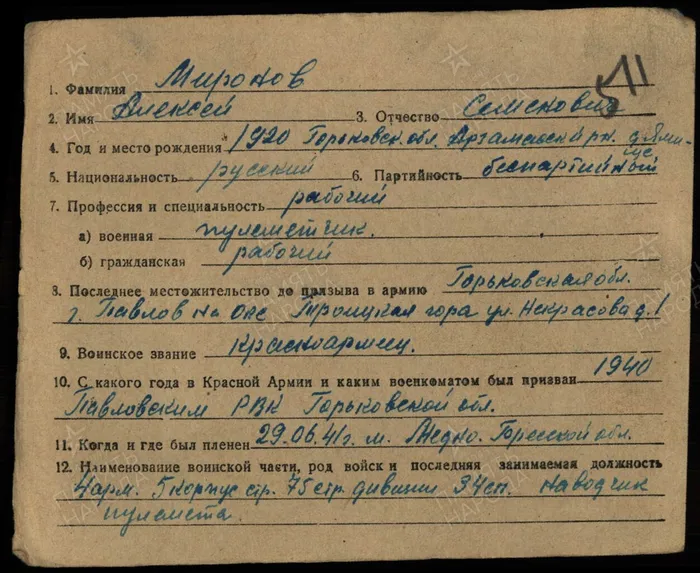 511
1. Фамилия Миронов
2. Имя Алексей 3. Отчество Семенович
4. Год и место рождения 1920 Горьковск. обл. Арзамасский рн. д.
5. Национальность русский 6. Партийность беспартийный
7. Профессия и специальность рабочий
а) военная пулеметчик.
б) гражданская рабочий
8. Последнее местожительство до призыва в армию Горьковская обл.
г. Павлов на Оке Троицкая гора ул. Некрасова д. 1
9. Воинское звание Красноармеец.
10. С какого года в Красной Армии и каким военкоматом был призван 1940
Павловским РВК Горьковской обл.
11. Когда и где был пленен 29.06.41г. м. обл.
12. Наименование воинской части, род войск и последняя занимаемая должность
4 арм. 5 корпус стр. 75 стр. дивизии 34 сп. наводчик
пулемета.